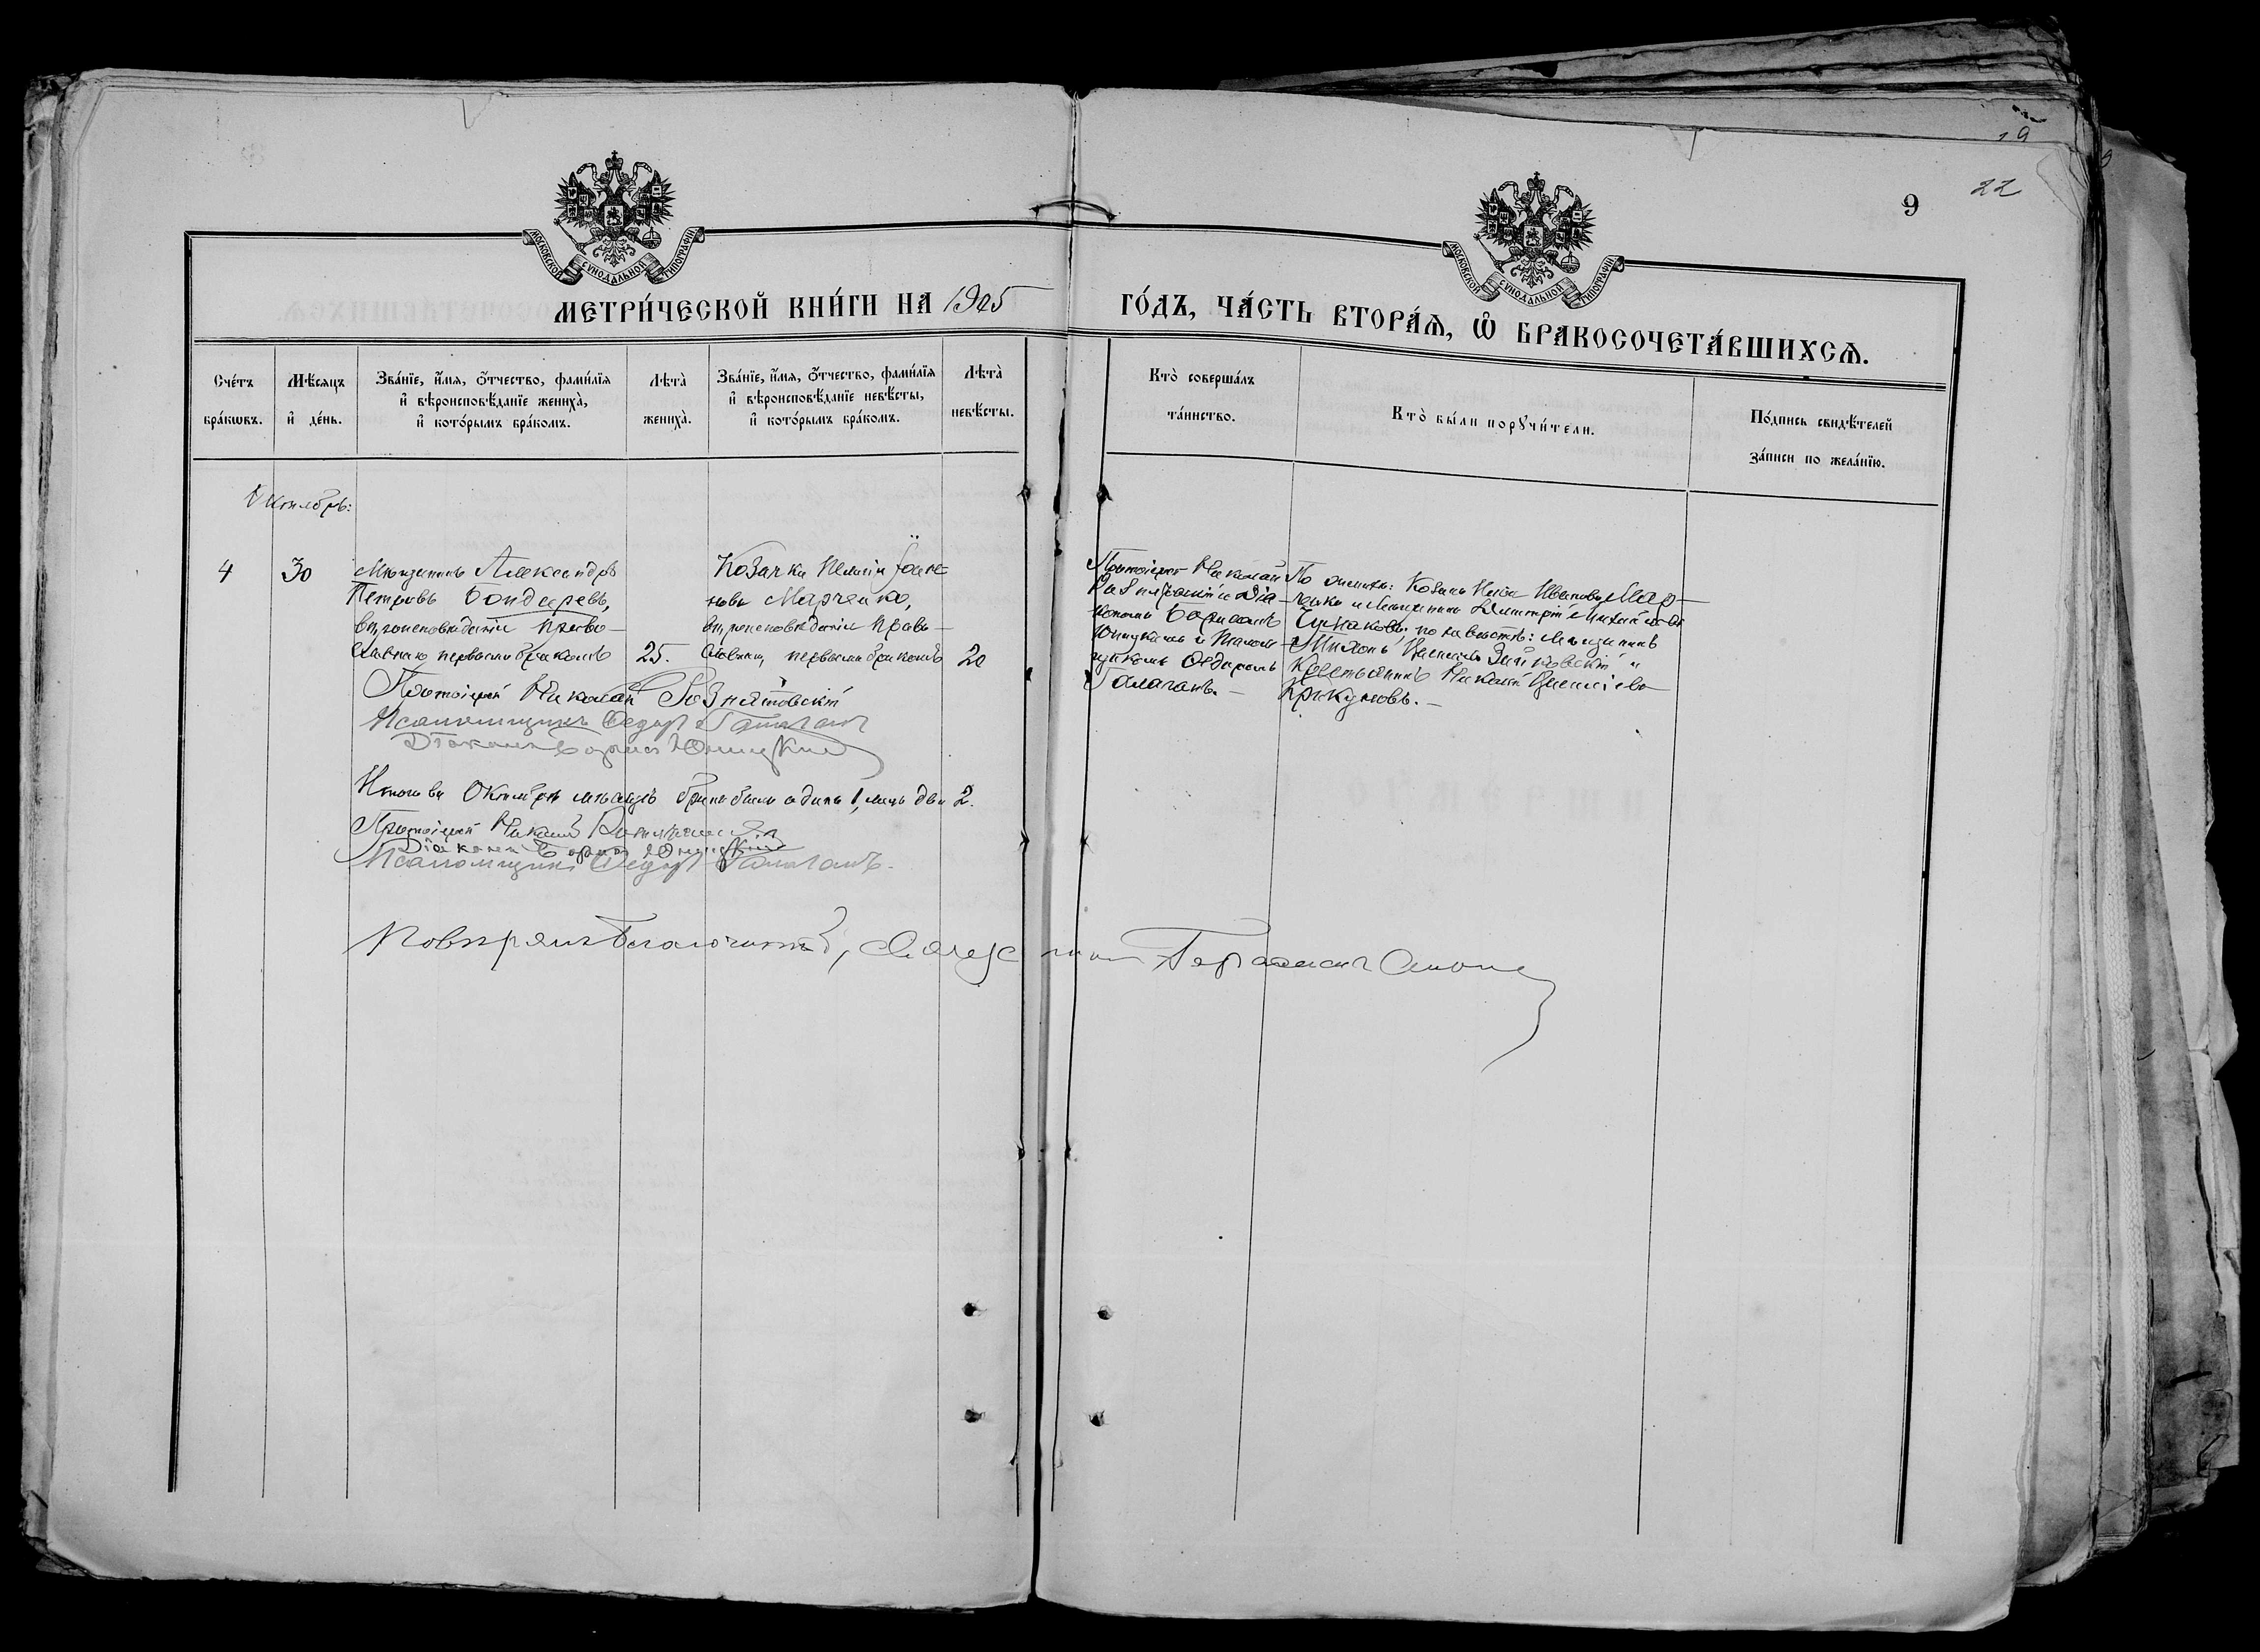 19
9
22
МОСКОВСКОЙ СѴНОДАЛЬНОЙ ТИПОГРАФІИ
МОСКОВСКОЙ СѴНОДАЛЬНОЙ ТИПОГРАФІИ
МЕТРИ́ЧЕСКОЙ КНИ́ГИ НА 1905
ГО́ДЪ, ЧА́СТЬ ВТОРА́Ѧ, Ѡ҆ БРАКОСОЧЕТА́ВШИХСѦ.
Сче́тъ
бра́кѡвъ.
Мѣ́сяцъ
и҆ де́нь.
Зва́нїе, и҆́мѧ, о҆́тчество, фами́лїѧ
и҆ вѣроисповѣ́данїе жениха̀,
и҆ кото́рымъ бра́комъ.
Лѣта̀
жениха̀.
Зва́нїе, и҆́мѧ, о҆́тчество, фами́лїѧ
и҆ вѣроисповѣ́данїе невѣ́сты,
и҆ кото́рымъ бра́комъ.
Лѣта̀
невѣ́сты.
Кто̀ соверша́лъ
та́инство.
Кто̀ бы́ли порꙋчи́тели.
По́дпись свидѣ́телей
за́писи по жела́нїю.
Октябрь:
4
30
Мѣщанинъ Александръ
Петровъ Бондаревъ,
вѣроисповѣданія право-
славнаго, первымъ бракомъ
25.
Козачка Пелагія Іоан-
нова Марченко,
вѣроисповѣданія право-
славнаго, первымъ бракомъ
20
Протоіерей Николай
Рознятовскій и Діа-
кономъ Борисомъ
Юницкимъ и Псалом-
щикомъ Ѳедоромъ
Галаганъ.-
По женихѣ: Козакъ Иванъ Ивановъ Мар-
ченко и Мѣщанинъ Димитрій Михайловъ
Чумаковъ; по невѣстѣ: Мѣщанинъ
Васильевъ и
Крестьянинъ Николай Васильевъ
Крикуновъ.-
Протоіерей Николай Рознятовскій
Псаломщикъ Ѳедоръ Галаганъ
Діаконъ Борисъ Юницкій
Итого въ Октябрѣ мѣсяцѣ бракъ былъ одинъ 1, лицъ два 2.
Протоіерей Николай Рознятовскій
Діаконъ Борисъ Юницкій
Псаломщикъ Ѳедоръ Галаганъ.
Повѣрялъ Благочинный, Священникъ